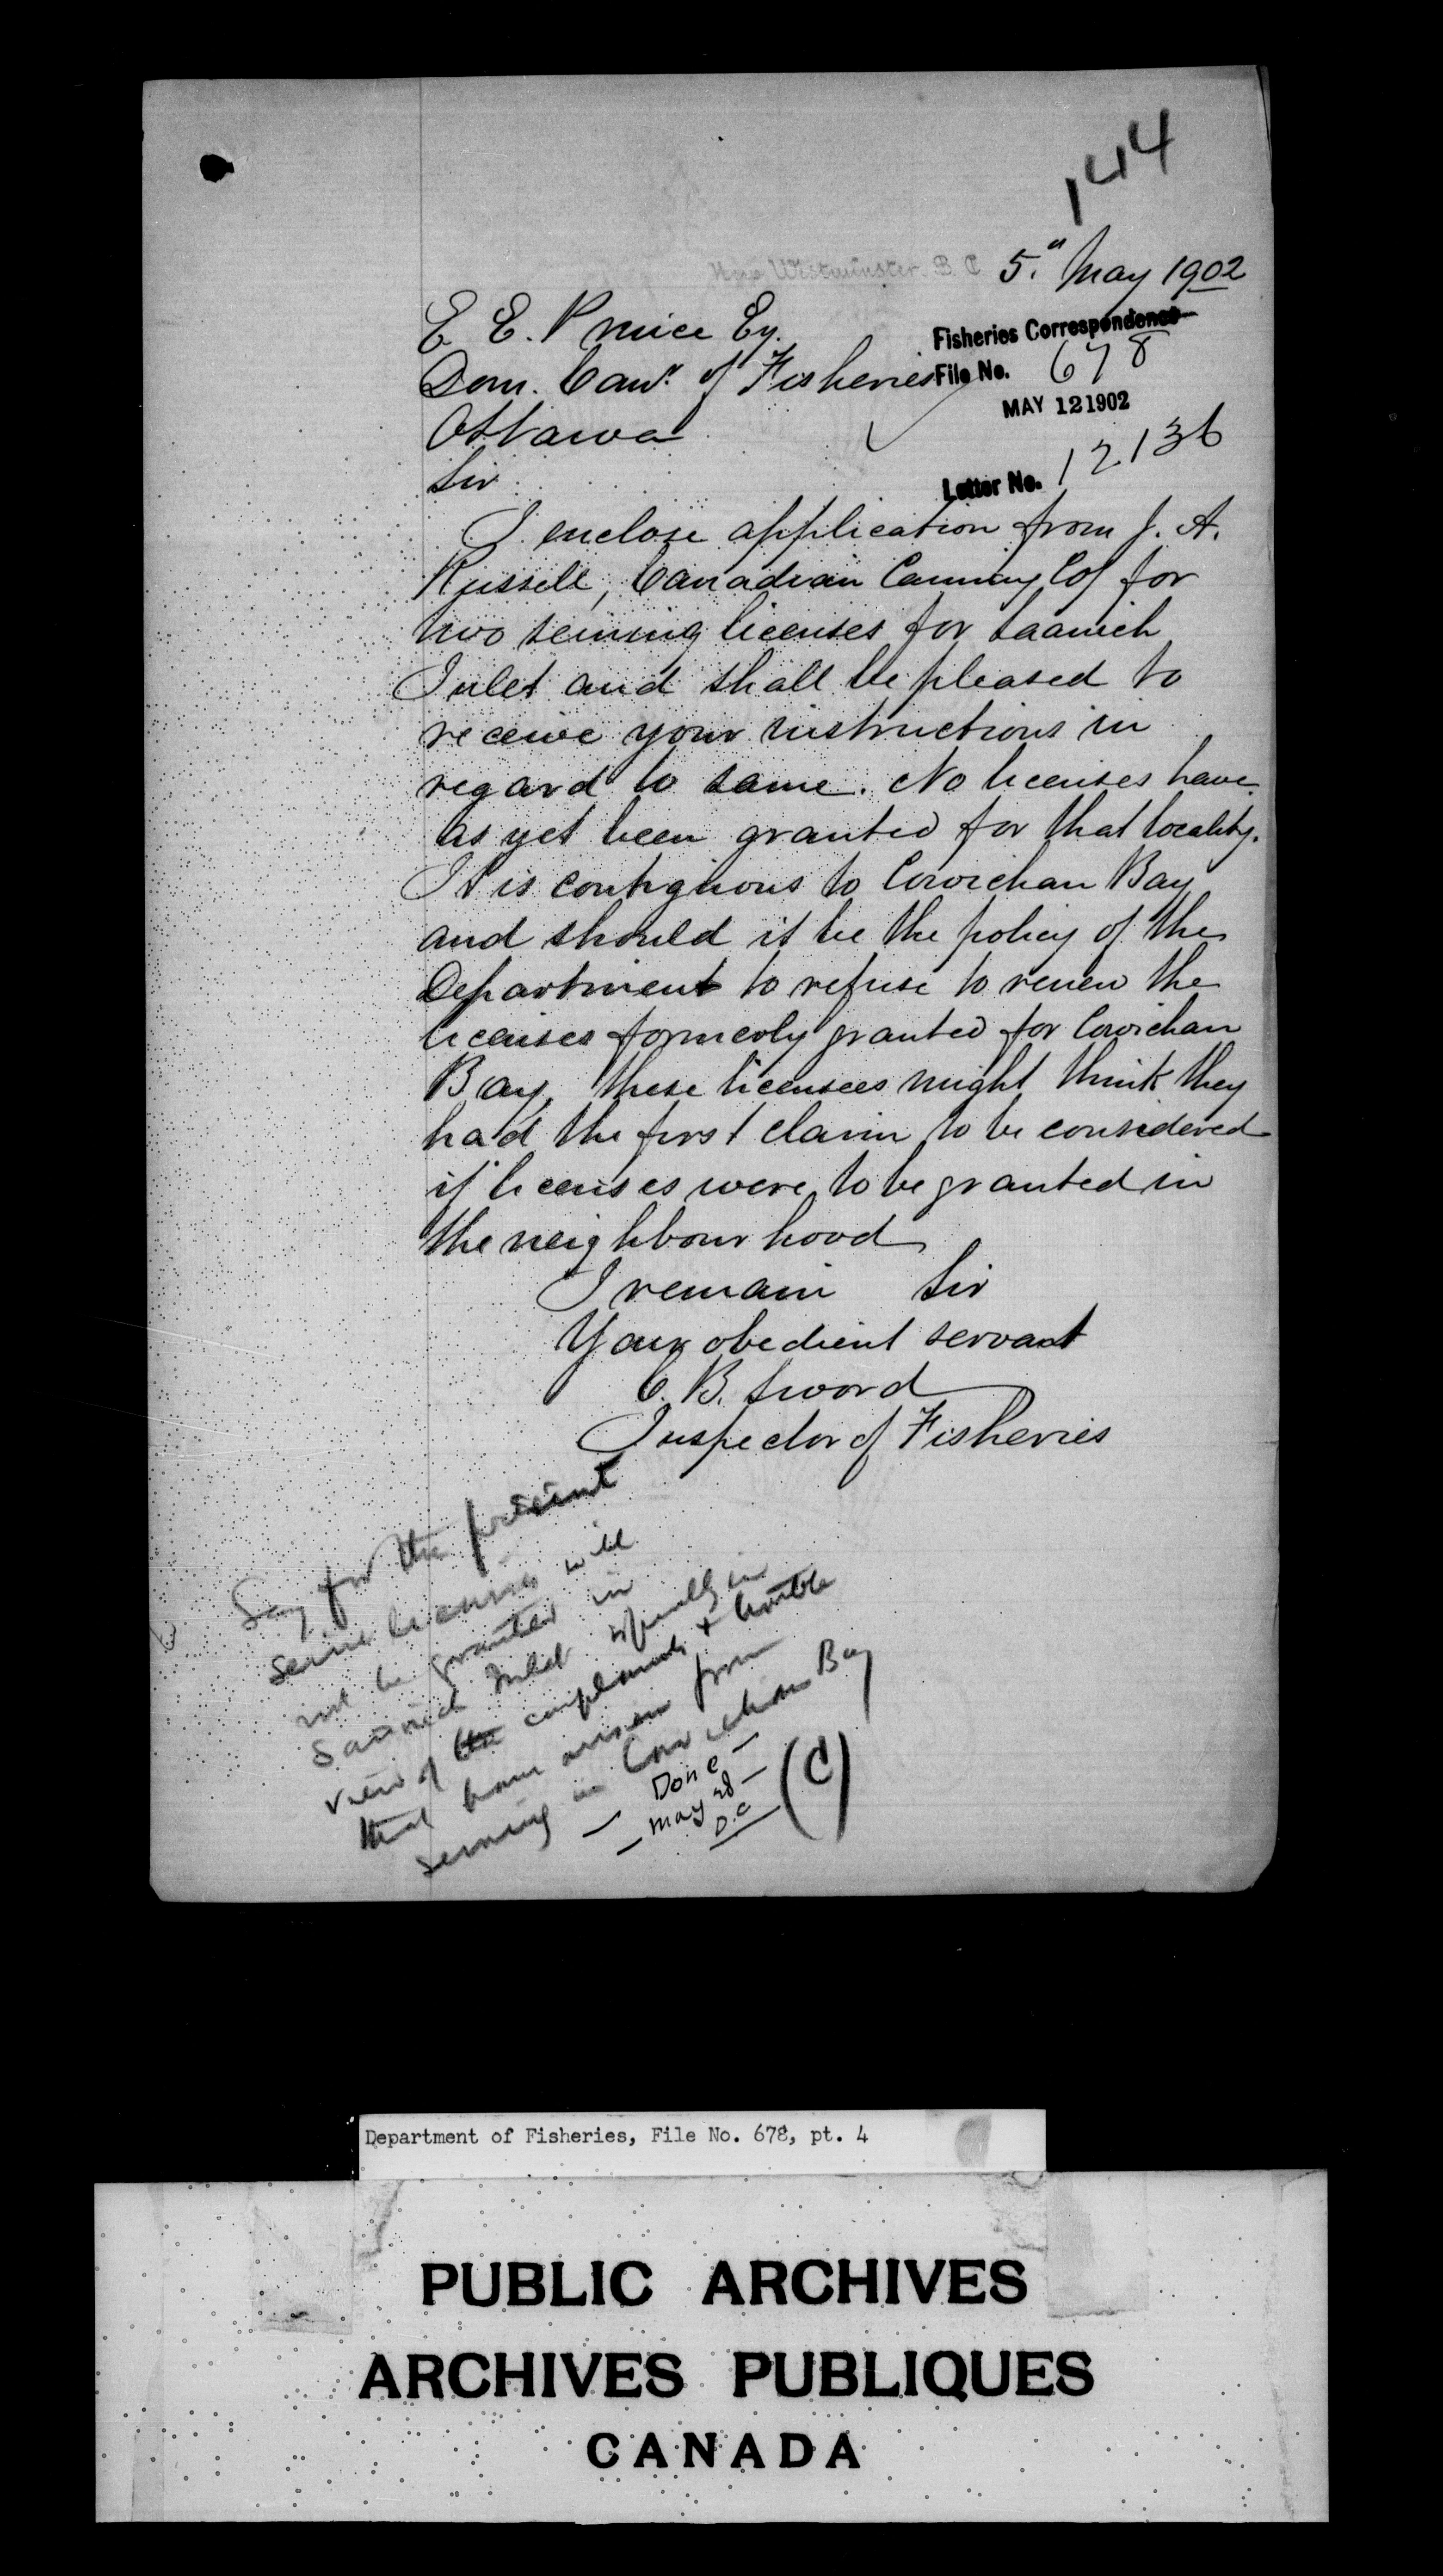 144
New Westminster. B. C. 5." May 1902
E. E. Prince Esq.
Dom. Com.r of Fisheries
Ottawa
Fisheries Correspondence
File No. 678
MAY 12 1902
Letter No. 12136
Sir
I enclose application from J. A.
Russell, Canadian Canning Co/ for
two seining licenses for Saanich
Inlet and shall be pleased to
receive your instructions in
regard to same. No licenses have
as yet been granted for that locality.
It is contiguous to Cowichan Bay
and should it be the policy of the
Department to refuse to renew the
licenses formerly granted for Cowichan
Bay, these licensees might think they
had the first claim to be considered
if licenses were to be granted in
the neighbourhood
I remain Sir
Your obedient servant
C. B. Sword
Inspector of Fisheries
Say for the present
seine licenses will
not be granted in
Saanich Inlet specially in
view of the complaints & trouble
that have arisen from
seining in Cowichan Bay
Done
May 28
D.C
(C)
Department of Fisheries, File No. 678, pt. 4
PUBLIC ARCHIVES
ARCHIVES PUBLIQUES
CANADA